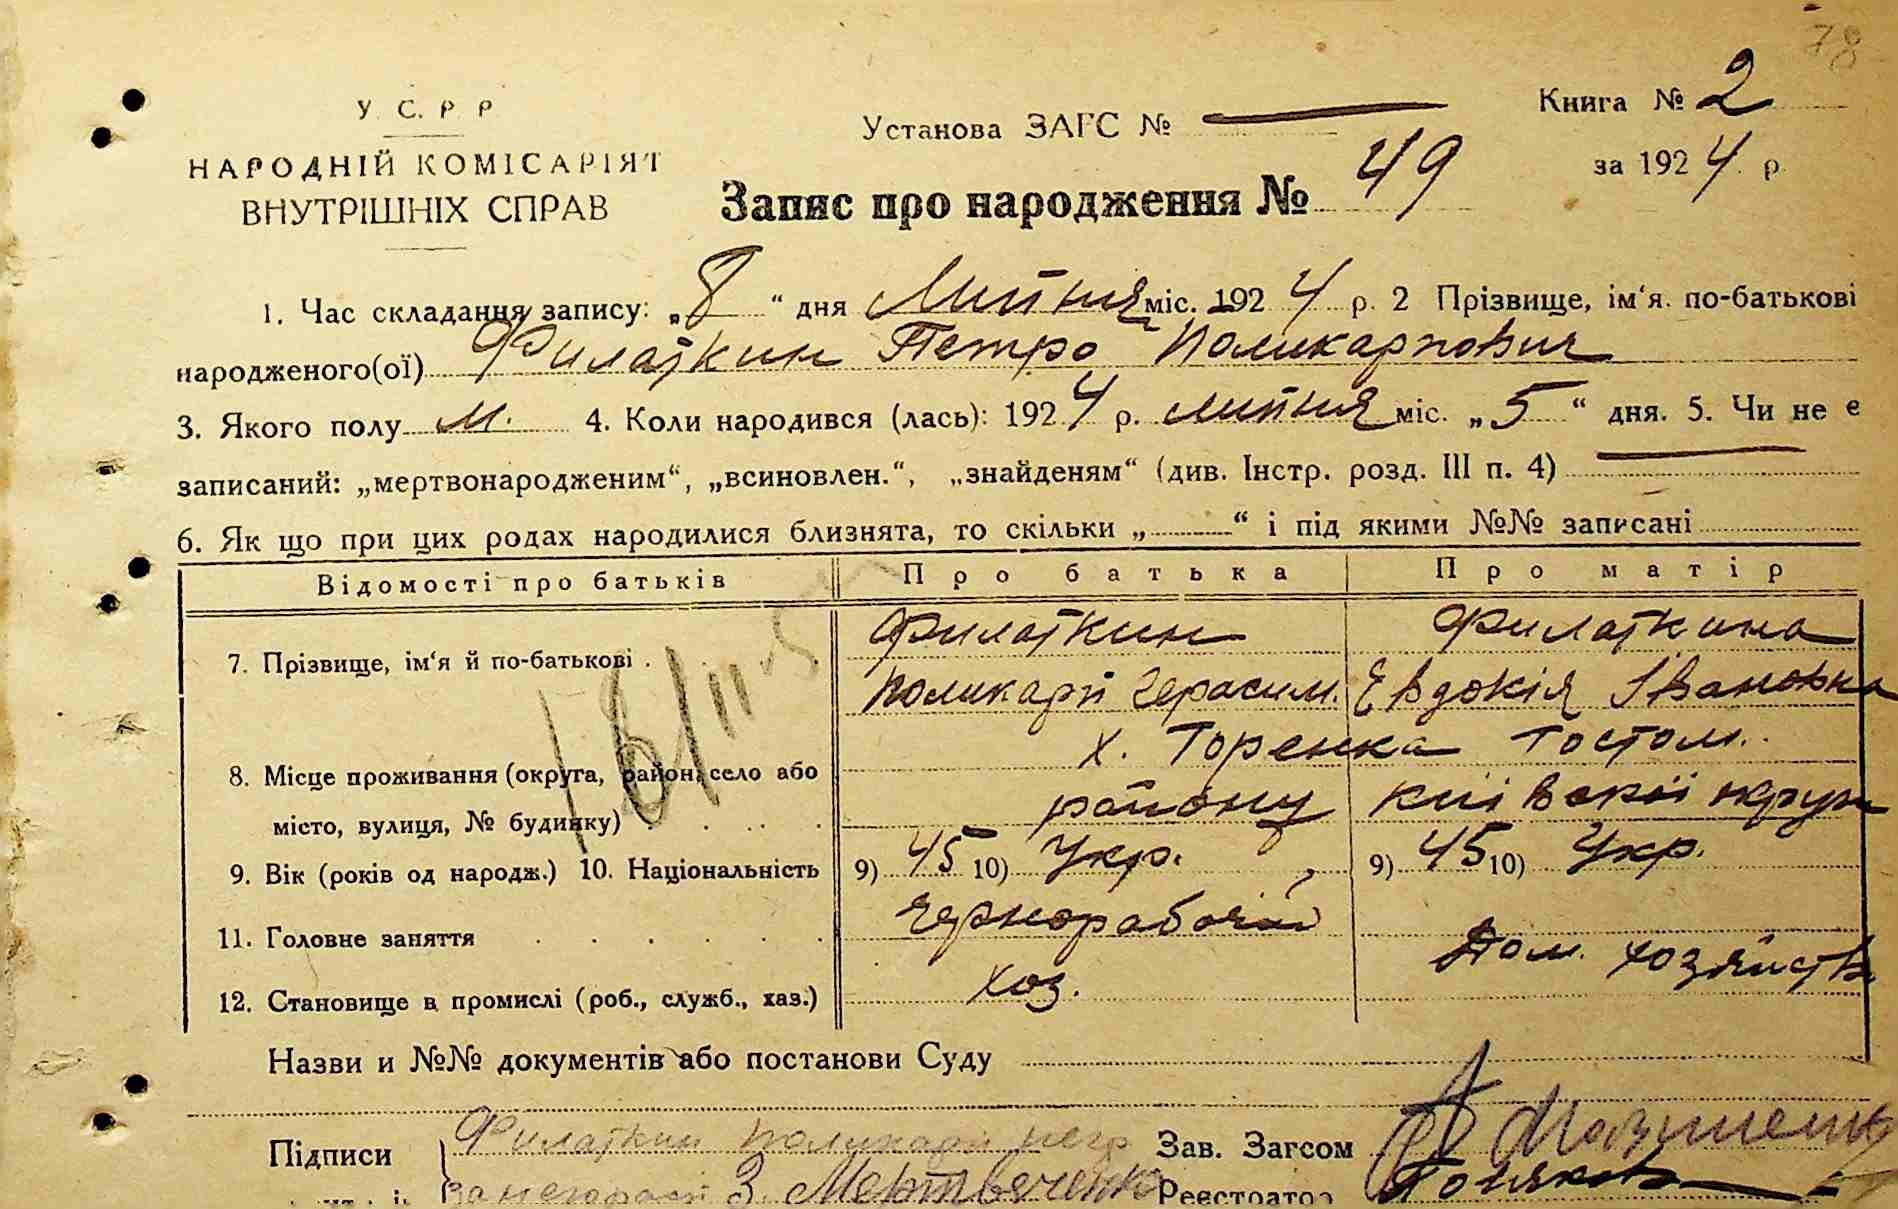 78
У. С. Р Р
НАРОДНІЙ КОМІСАРІЯТ
ВНУТРІШНІХ СПРАВ
Установа ЗАГС №
Книга № 2
за 1924 р.
Запис про народження № 49
1. Час складання запису: „8“ дня Липня міс. 1924 р. 2 Прізвище, ім'я. по-батькові
народженого(ої) Филаткин Петро Поликарпович
3. Якого полу м. 4. Коли народився (лась): 1924 р. липня міс. „5“ дня. 5. Чи не є
записаний: „мертвонародженим“, „всиновлен.“, „знайденям“ (див. Інстр. розд. III п. 4)
6. Як що при цих родах народилися близнята, то скільки „ “ і під якими №№ записані
Відомості про батьків Про батька Про матір
7. Прізвище, ім'я й по-батькові . Филаткин Филаткина
Поликарп Герасим. Евдокія Івановна
х. Горенка Гостом.
8. Місце проживання (округа, район, село або
місто, вулиця, № будинку) району київскої округи
9. Вік (років од народж.) 10. Національність 9) 45 10) Укр. 9) 45 10) Укр.
11. Головне заняття чернорабочій
12. Становище в промислі (роб., служб., хаз.) хоз. Дом. хозяйств
Назви и №№ документів або постанови Суду
Підписи Филаткин поликарп Зав. Загсом
З. Мертвеченко Реєстратор